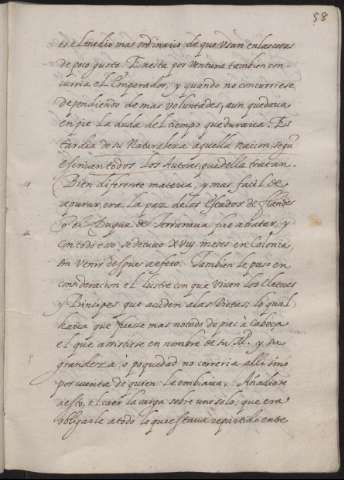 58
es el medio mas ordinario de que usan en las cosas
de poco gusto. En esta por ventura tambien con
curria el Emperador, y quando no concurriese
dependiendo de mas voluntades, aun quedava
en pie la duda del tiempo que duraria. Es
tardia de su Naturaleza aquella nacion segun
escriven todos los Autores que della tratan.
Bien diferente materia, y mas facil de
apurar era la paz de los Estados de Flandes
y el Duque de Terranova fue a tratar, y
con todo eso se detuvo XVIII meses en Colonia
sin venir despues a efeto. Tambien le puso en
consideracion el lustre con que viven los
y Principes que acuden a las Dietas, lo qual
haria que fuese mas notado de pies a cabeça
el que asistiese en nombre de su M.d, y su
grandeza, o poquedad no correria alli sino
por cuenta de quien le embiava. Añadiose
a esto, el caer la carga sobre uno solo, que era
obligarle a todo lo que estava repartido entre